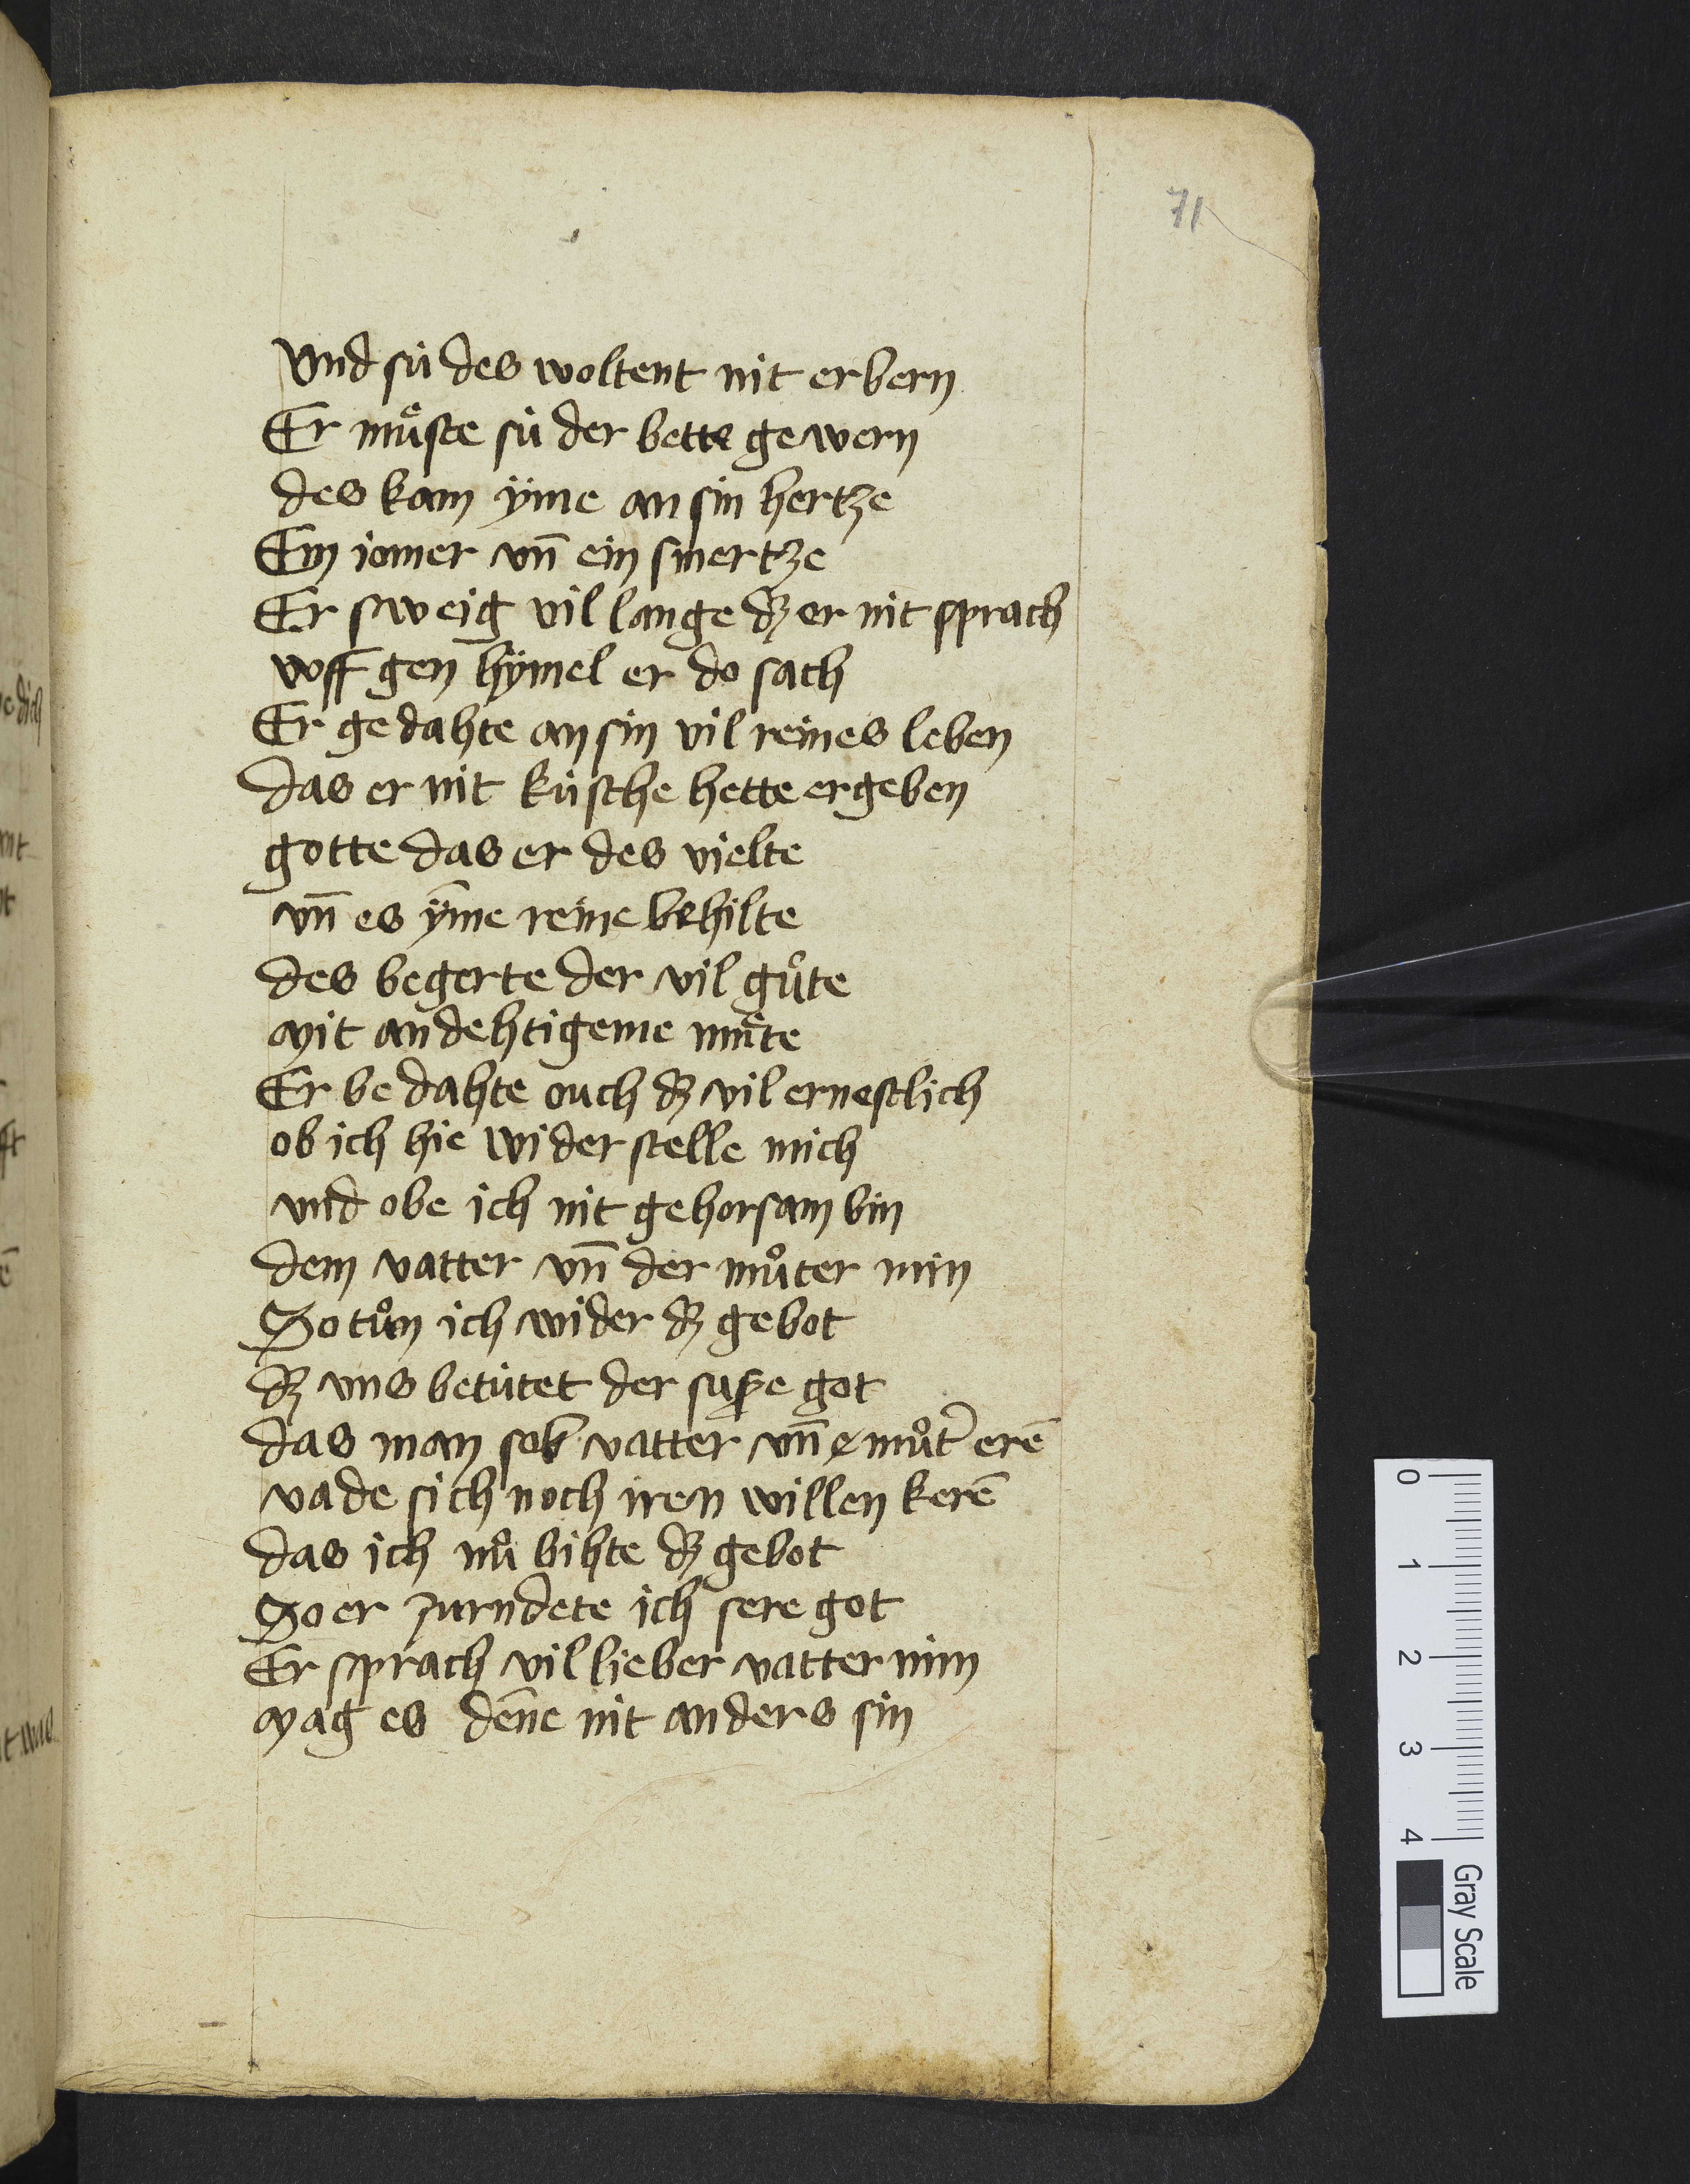 71
Vnd sü des woltent nit erbern
Er mu͑ste sü der bette gewern
des kam ÿme an sin hertze
Ein iomer vn̄ ein smertze
Er sweig vil lange dz er nit sprach
vff gen hÿmel er do sach
Er gedahte an sin vil reines leben
das er nit küsche hette ergeben
gotte das er des vielte
vn̄ es ÿme reine behilte
des begerte der vil gůte
mit andehtigeme můte
Er bedahte ouch dz vil ernestlich
ob ich hie wider stelle mich
vnd obe ich nit gehorsam bin
dem vatter vn̄ der můter min
So tůn ich wider dz gebot
dz vns betütet der susze got
das man sol vatter vn̄ můt͛ erē
vnde sich noch iren willen kerē
das ich nů bihte dz gebot
So er zurndete ich sere got
Er sprach vil lieber vatter min
mag es den̄e nit anders sin
0
1
2
3
4
Gray Scale